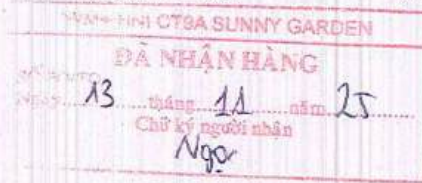 WM+ HNI CT9A SUNNY GARDEN
ĐÃ NHẬN HÀNG
Ngày 13 tháng 11 năm 25
Chữ ký người nhận
Ngọ